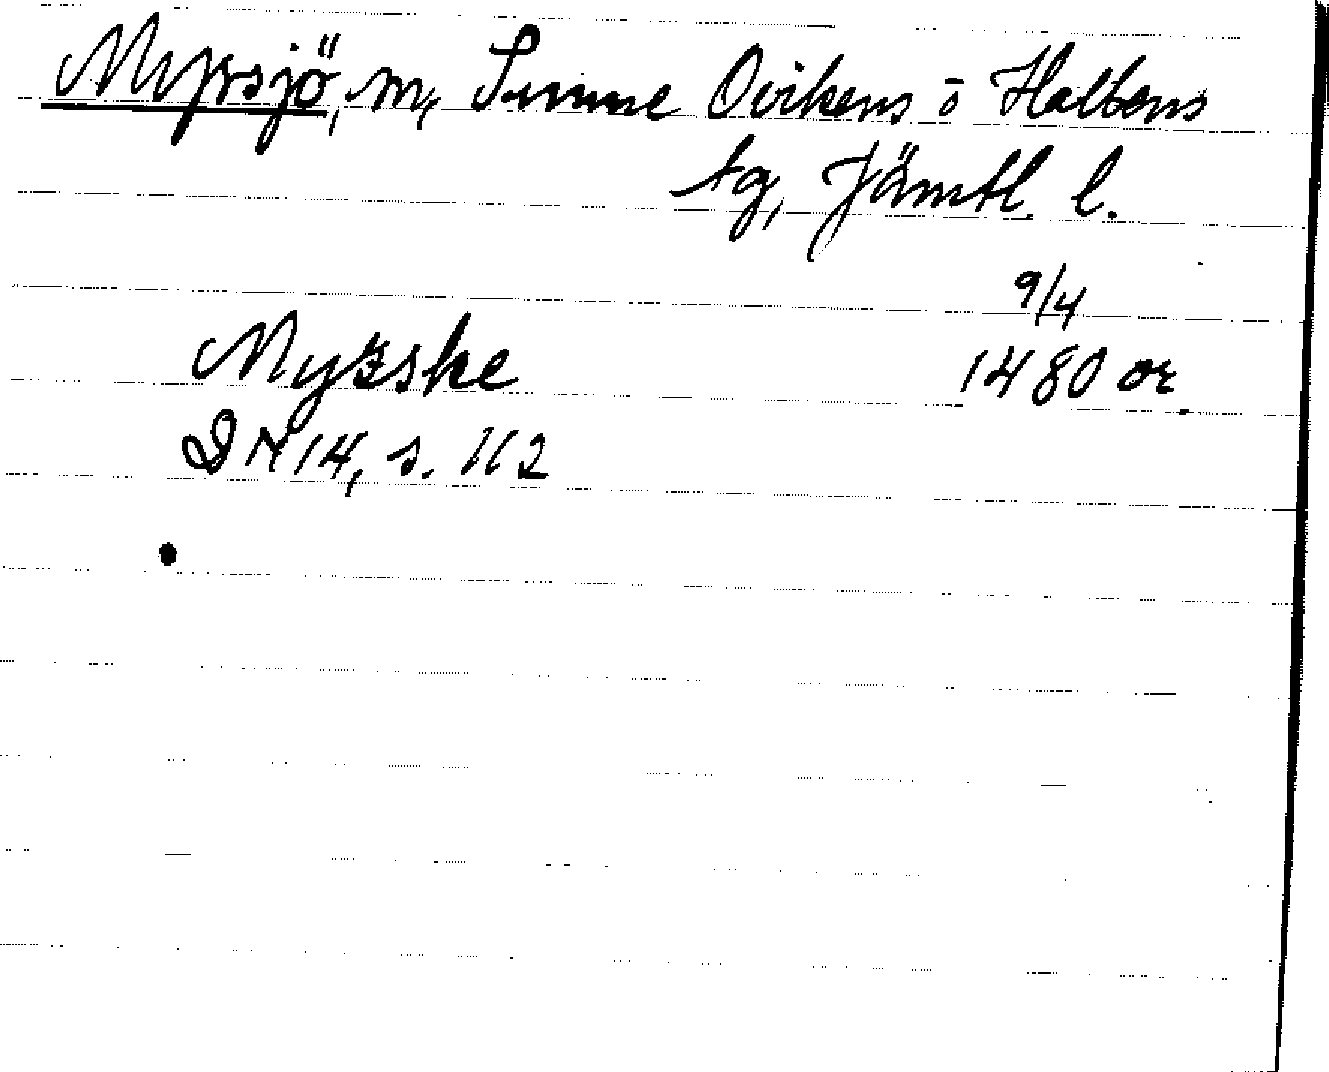 Myrsjö, m, Sunne Ovikens o Hallens
tg, Jämtl. l.
9/4
Myzske 1480 or.
DN 14, s. 112